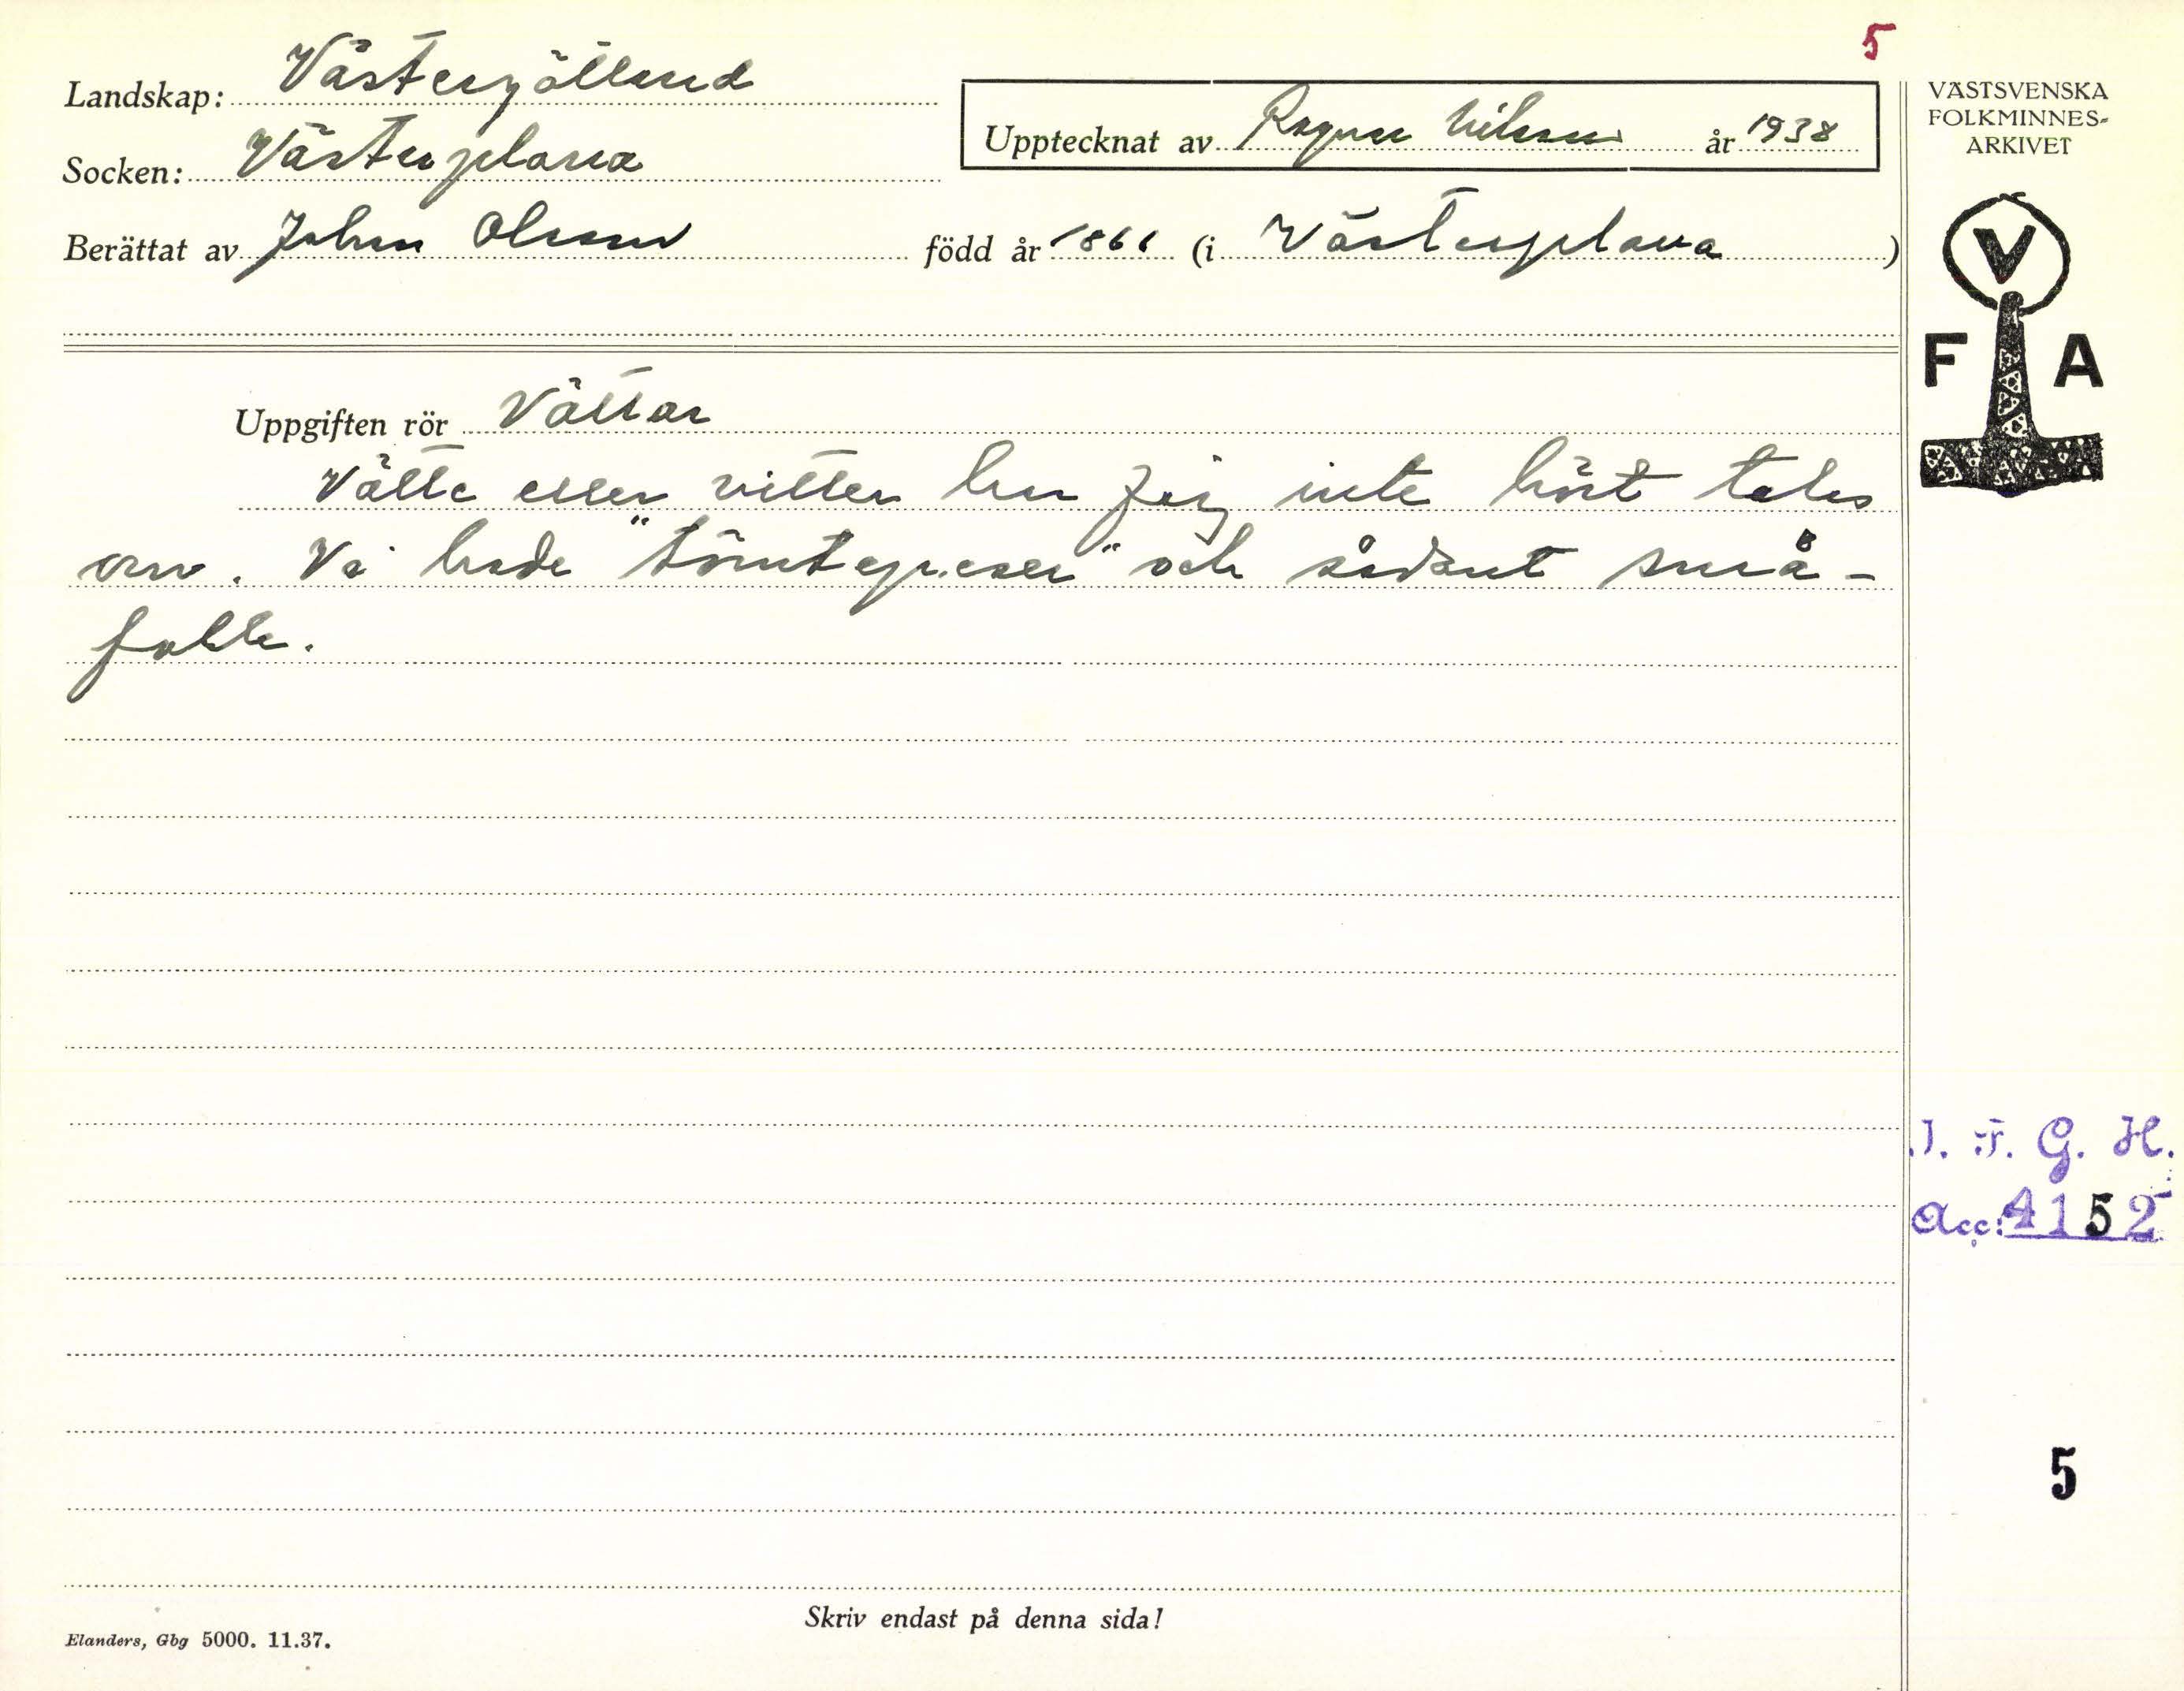 5
Landskap: Västergötland
Socken: Västerplana
Upptecknat av Ragnar Nilsson år 1938
Berättat av Johan Olsson född år 1866 (i Västerplana)
VÄSTSVENSKA
FOLKMINNES-
ARKIVET
V
F A
Uppgiften rör Vättar
Vätte eller vitter har jag inte hört talas
om. Vi hade "tomtegubbar" och sådant små-
folk.
I. F. G. H.
Acc: 4152
5
Skriv endast på denna sida!
Elanders, Gbg 5000. 11.37.